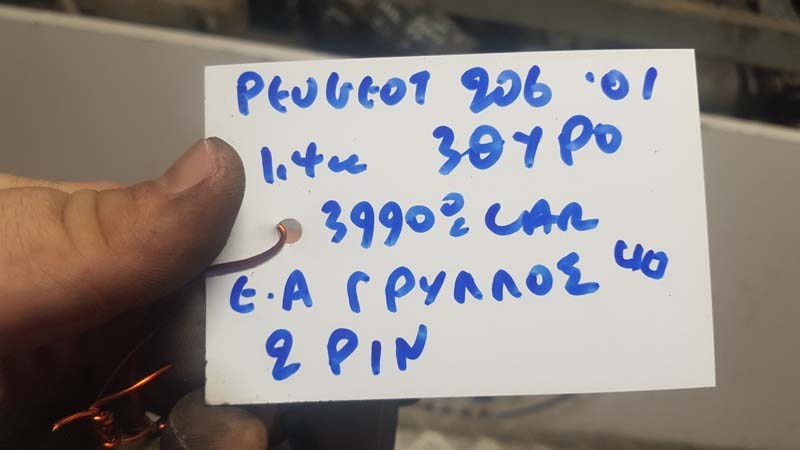 PEUGEOT 206 '01
1.4cc 3ΘΥΡΟ
3990% CAR
E.A ΓΡΥΛΛΟΣ 40
2 PIN